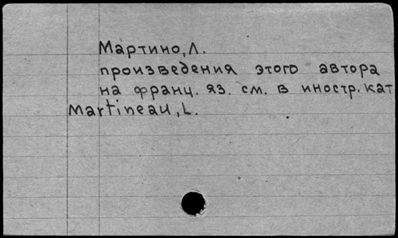 Мартино, Л.
произведения этого автора
на франц. яз. см. в иностр. кат
Martineau, L.